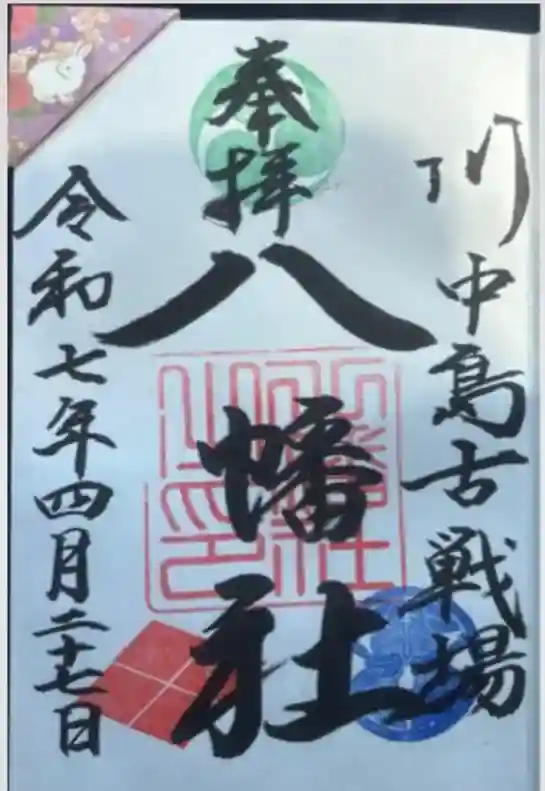 川中島古戦場
奉拝
八幡社
令和七年四月二十七日